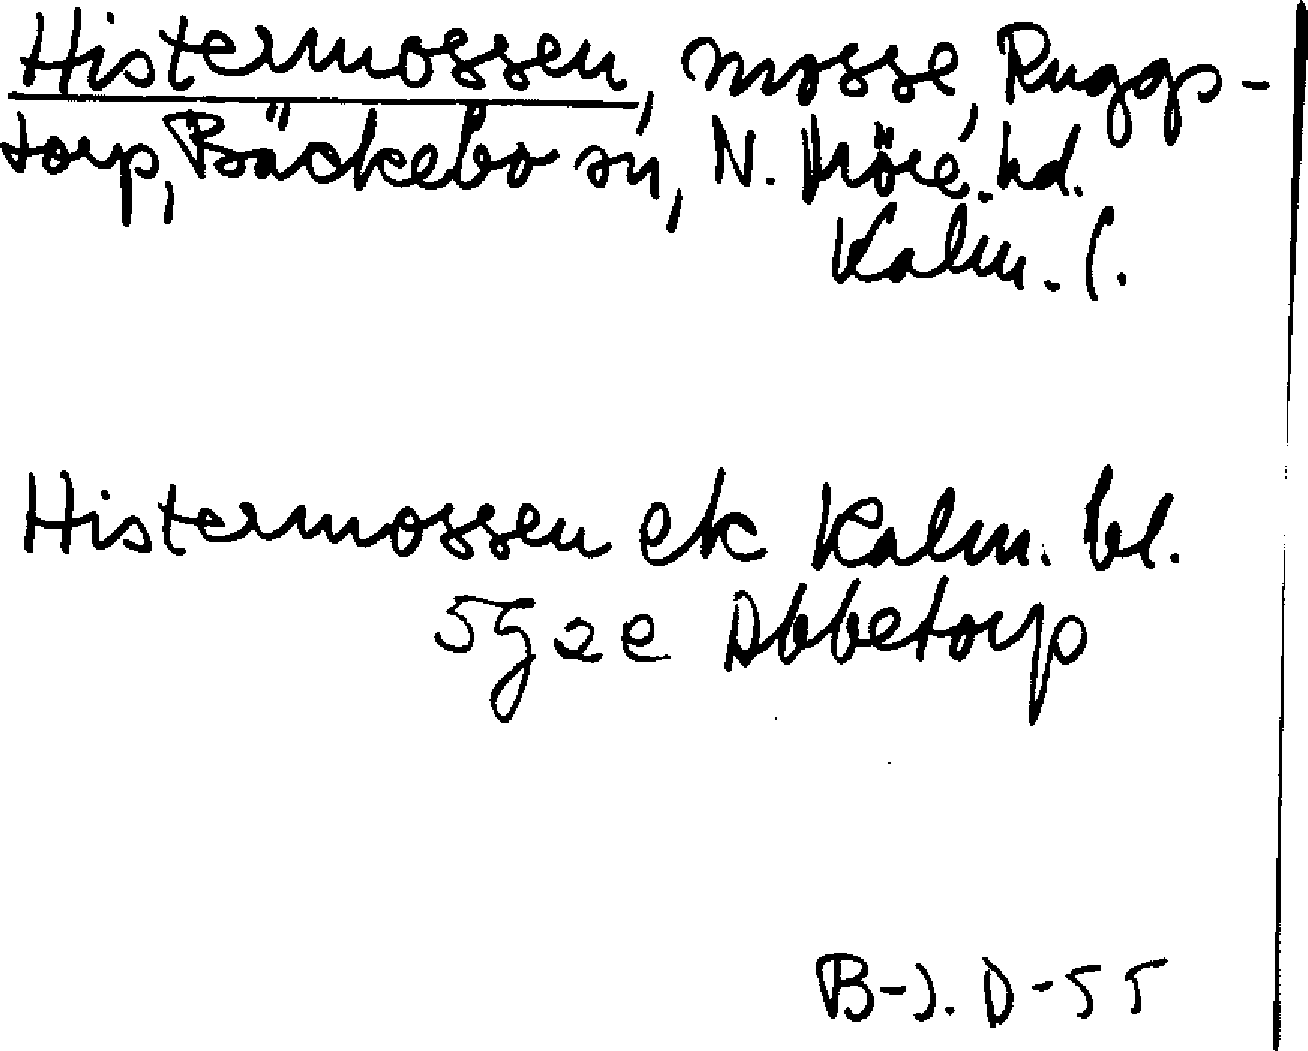 Histermossen, mosse, Ruggs-
torp, Bäckebo sn, N. Möre hd.
Kalm. l.
Histermossen ek Kalm. bl.
5g2e Abbetorp
B-J. D-55